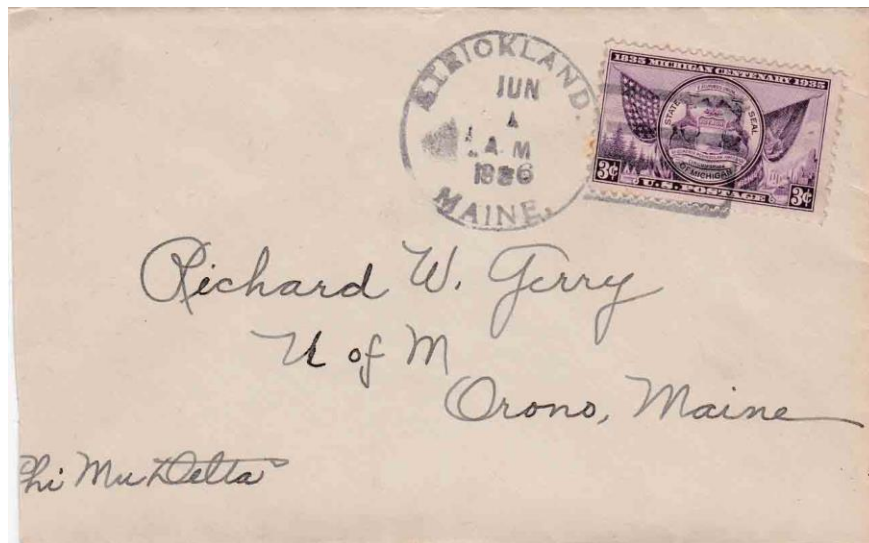 STRICKLAND.
JUN
1
A M
1936
MAINE.
1835 MICHIGAN CENTENARY 1935
STATE SEAL
OF MICHIGAN
3¢ U.S. POSTAGE 3¢
Richard W. Gerry
U of M
Orono, Maine
Phi Mu Delta